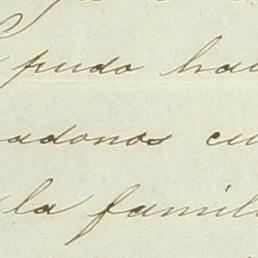 pudo ha
adonos cu
la famili